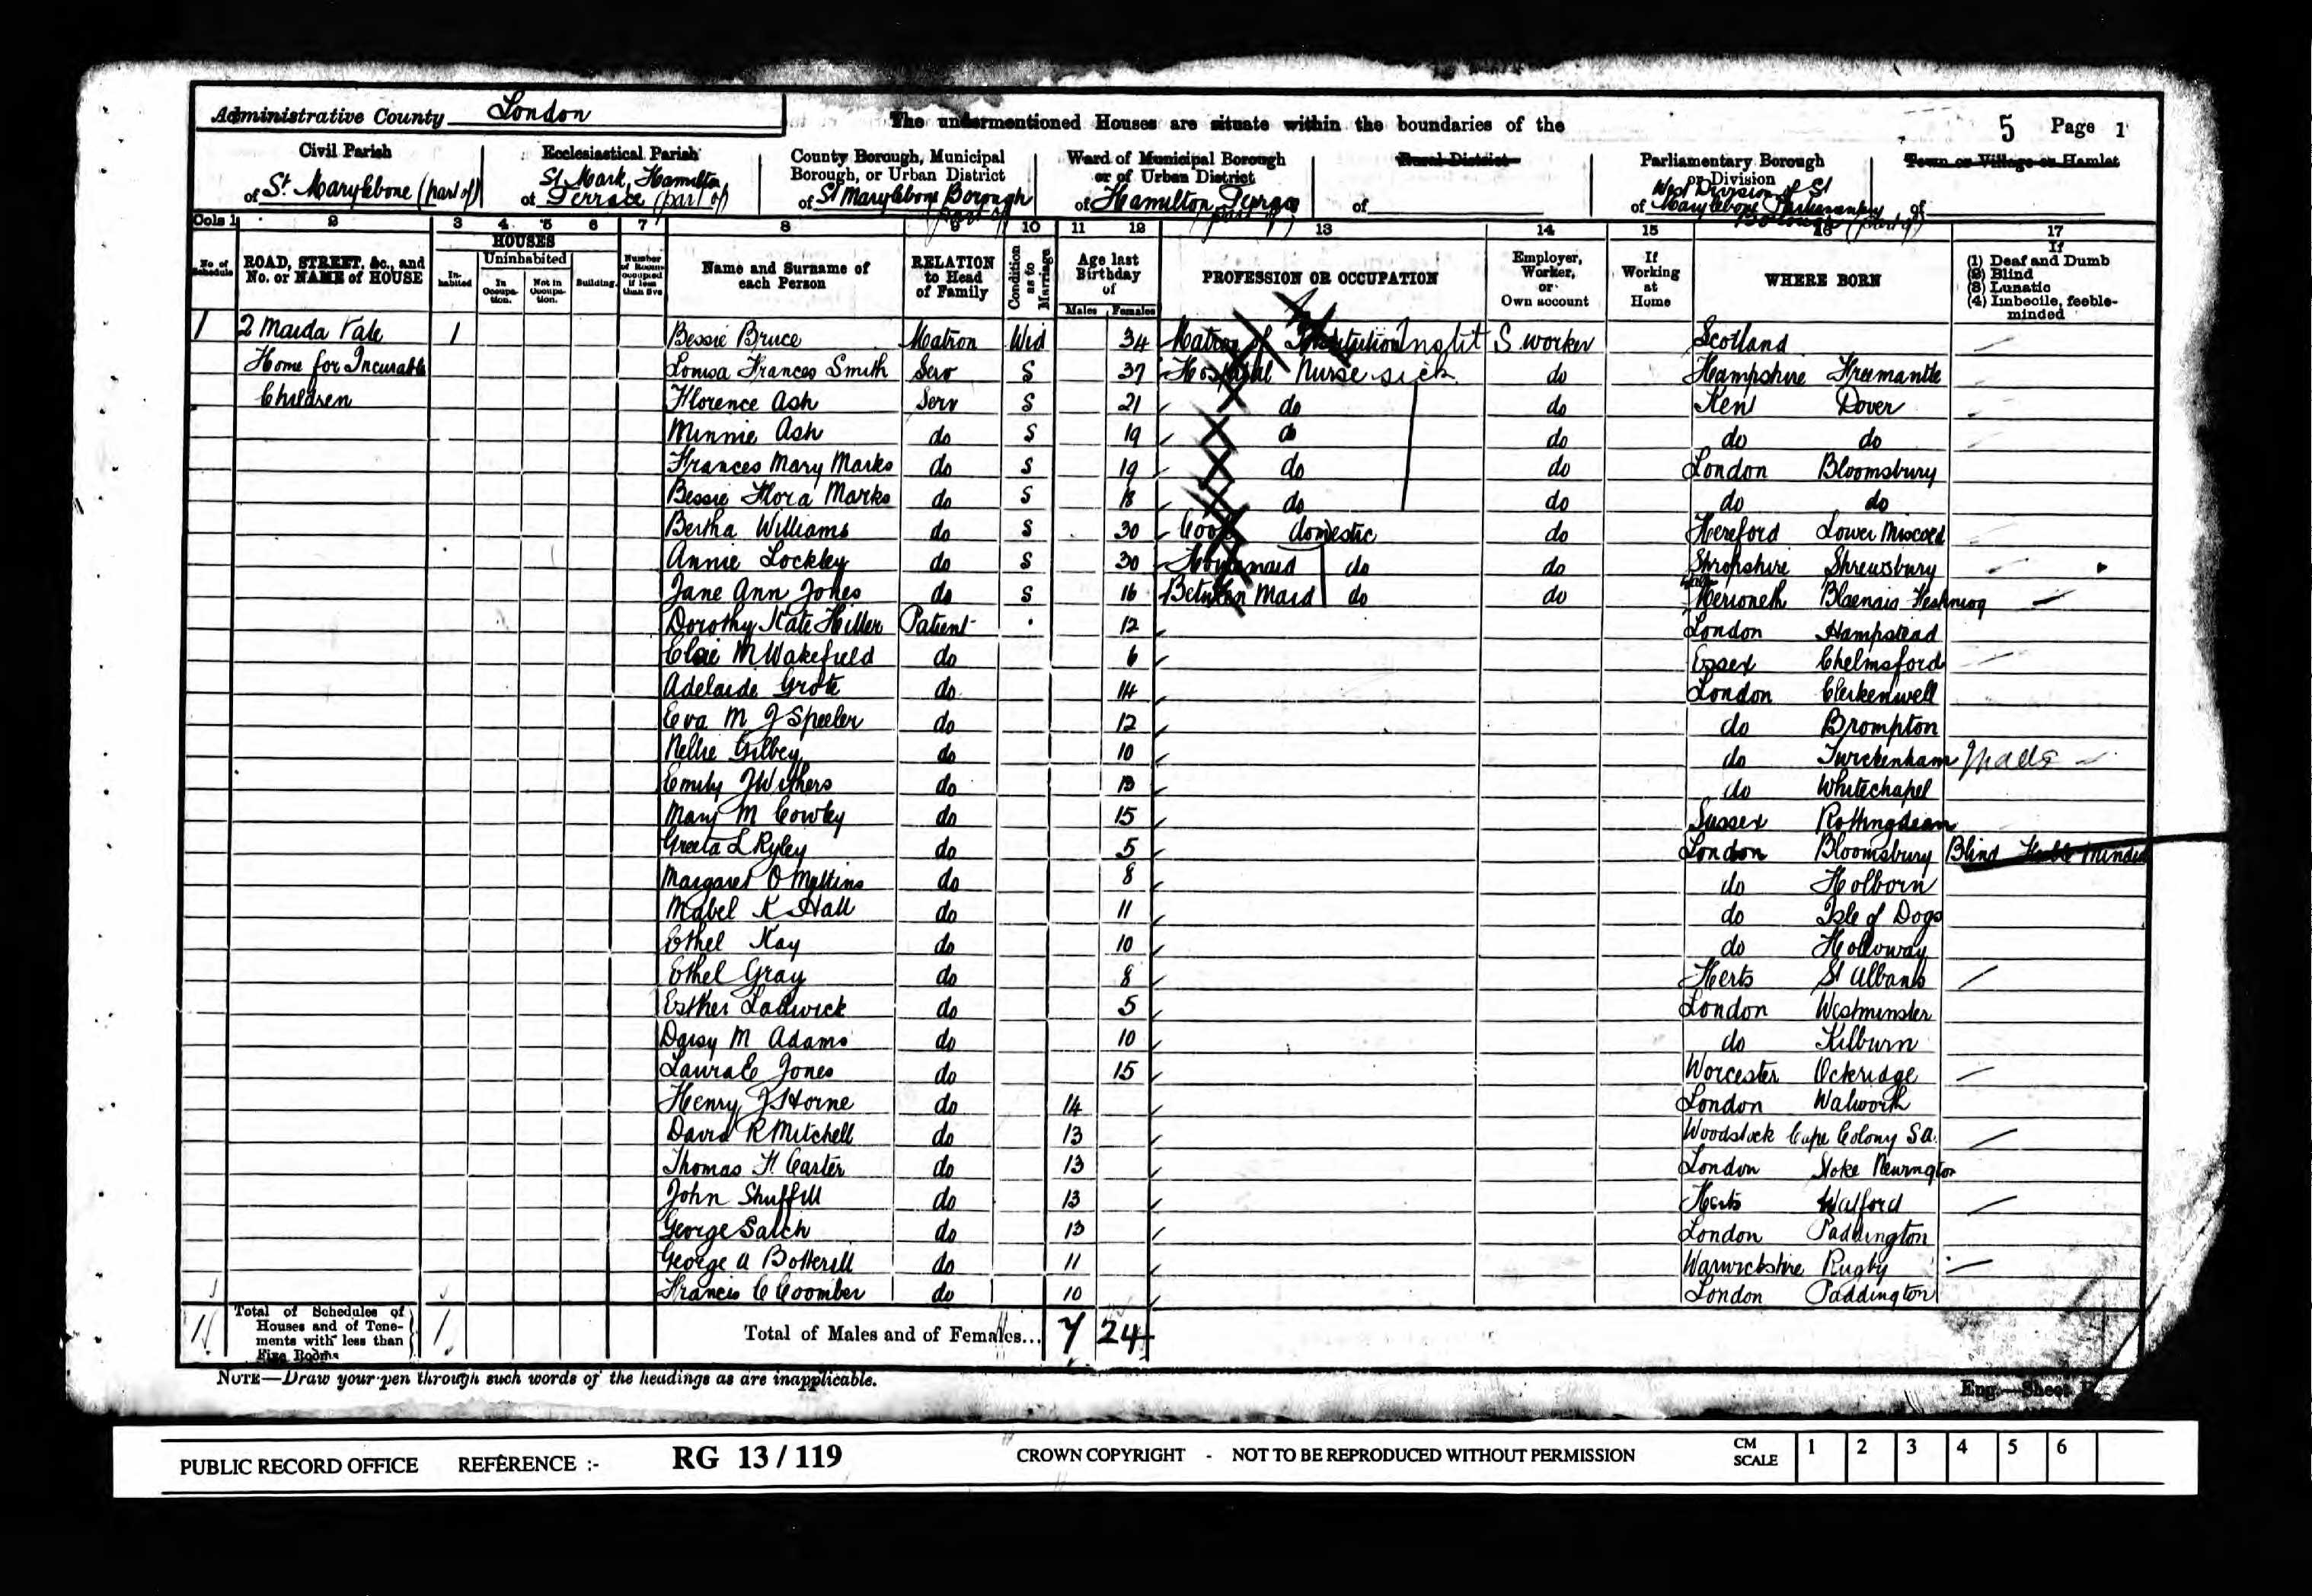 Administrative County London
The undermentioned Houses are situate within the boundaries of the
5 Page 1
Civil Parish of St Marylebone (part of)
Ecclesiastical Parish of St Mark, Hamilton Terrace (part of)
County Borough, Municipal Borough, or Urban District of St Marylebone Borough (part of)
Ward of Municipal Borough or of Urban District of Hamilton Terrace (part of)
Rural District of
Parliamentary Borough or Division of West Division of St Marylebone Parliamentary Borough (part of)
Town or Village or Hamlet of
Cols 1 2 3 4 5 6 7 8 9 10 11 12 13 14 15 16 17
No. of Schedule
ROAD, STREET, &c., and No. or NAME of HOUSE
HOUSES
Inhabited
Uninhabited
In Occupation.
Not in Occupation.
Building.
Number of Rooms occupied if less than five
Name and Surname of each Person
RELATION to Head of Family
Condition as to Marriage
Age last Birthday of
Males Females
PROFESSION OR OCCUPATION
Employer, Worker, or Own account
If Working at Home
WHERE BORN
If
(1) Deaf and Dumb
(2) Blind
(3) Lunatic
(4) Imbecile, feeble-minded
1 2 Maida Vale 1 Bessie Bruce Matron Wid 34 Matron of Institution Instit S. worker Scotland
Home for Incurable Louisa Frances Smith Serv S 37 Hospital Nurse sick do Hampshire Freemantle
Children Florence Ash Serv S 21 do do Kent Dover
Minnie Ash do S 19 do do do do
Frances Mary Marks do S 19 do do London Bloomsbury
Bessie Flora Marks do S 18 do do do do
Bertha Williams do S 30 Cook domestic do Hereford Lower
Annie Lockley do S 30 Housemaid do do Shropshire Shrewsbury
Jane Ann Jones do S 16 Between Maid do do Merioneth Blaenau Festiniog
Dorothy Kate Hiller Patient 12 London Hampstead
Elsie M Wakefield do 6 Essex Chelmsford
Adelaide Grote do 14 London Clerkenwell
Eva M J Speeler do 12 do Brompton
Nellie Gilbey do 10 do Twickenham
Emily J Withers do 13 do Whitechapel
Mary M Cowley do 15 Sussex Rottingdean
Greeta L Ryley do 5 London Bloomsbury Blind Feeble Minded
Margaret O Mullins do 8 do Holborn
Mabel K Hall do 11 do Isle of Dogs
Ethel Kay do 10 do Holloway
Ethel Gray do 8 Herts St Albans
Esther Ladwick do 5 London Westminster
Daisy M Adams do 10 do Kilburn
Laura E Jones do 15 Worcester Ockridge
Henry J Horne do 14 London Walworth
David R Mitchell do 13 Woodstock Cape Colony S.A.
Thomas H. Carter do 13 London Stoke Newington
John Shuffill do 13 Herts Watford
George Satch do 13 London Paddington
George A Botterill do 11 Warwickshire Rugby
Francis C Coomber do 10 London Paddington
1 Total of Schedules of Houses and of Tenements with less than Five Rooms 1 Total of Males and of Females... 7 24
NOTE—Draw your pen through such words of the headings as are inapplicable.
Eng.—Sheet
PUBLIC RECORD OFFICE REFERENCE :- RG 13 / 119 CROWN COPYRIGHT - NOT TO BE REPRODUCED WITHOUT PERMISSION CM SCALE 1 2 3 4 5 6